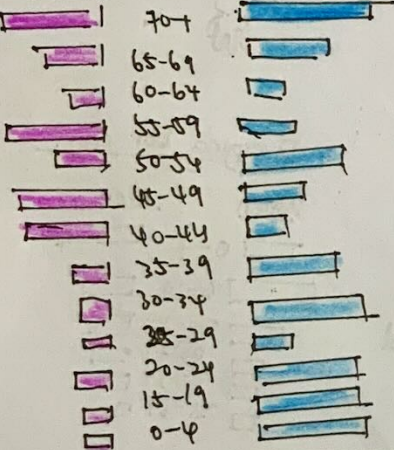 70+
65-69
60-64
55-59
50-54
45-49
40-44
35-39
30-34
25-29
20-24
15-19
0-4